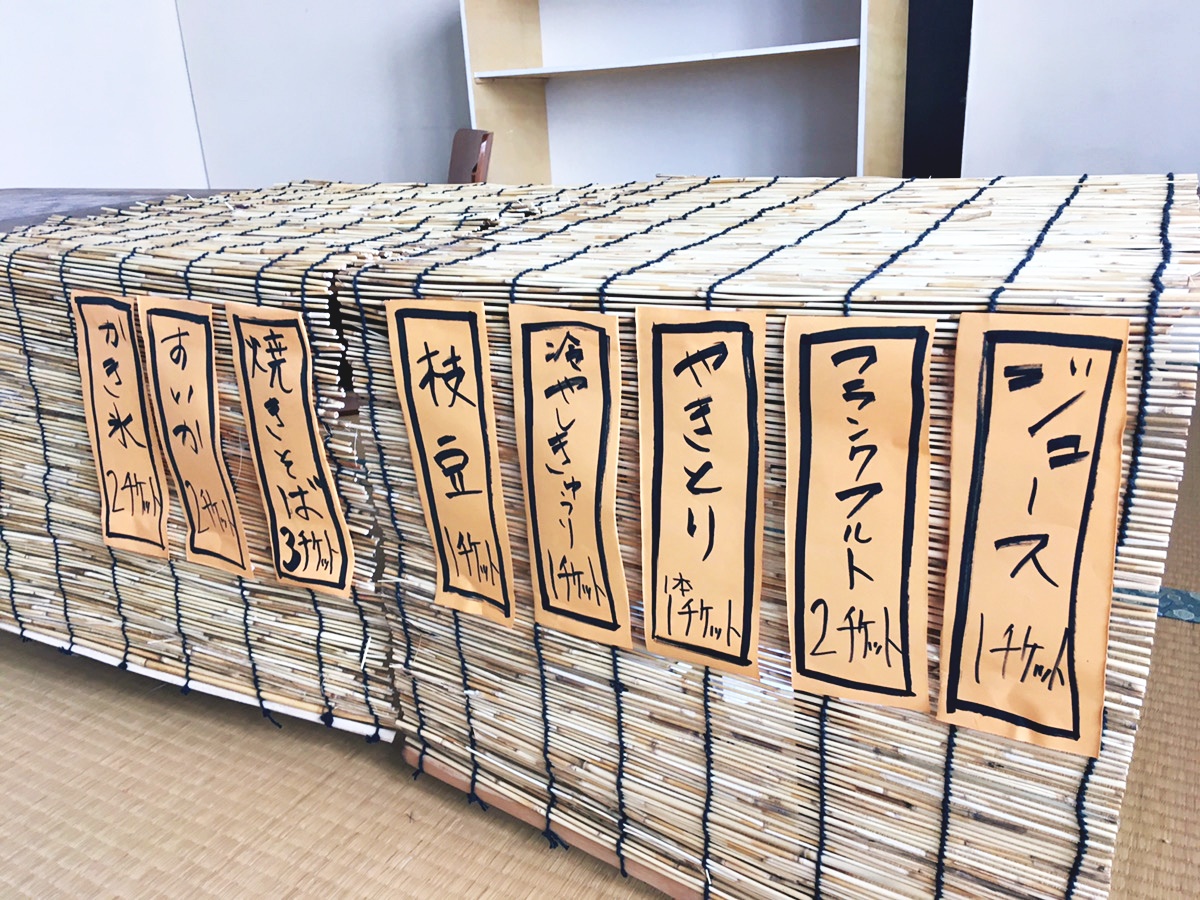 かき氷
2チケット
すいか
2チケット
焼きそば
3チケット
枝豆
1チケット
冷やしきゅうり
1チケット
やきとり
1本
1チケット
フランクフルト
2チケット
ジュース
1チケット